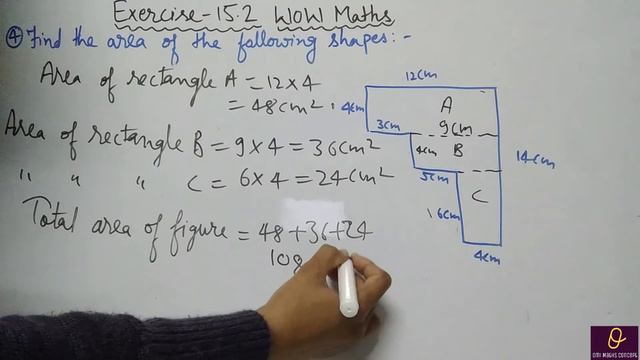 Exercise-15.2 WOW Maths
④ Find the area of the following shapes:-
Area of rectangle A = 12×4
= 48cm²
Area of rectangle B = 9×4 = 36cm²
" " " C = 6×4 = 24cm²
Total area of figure = 48+36+24
108
12cm
4cm
A
3cm
9cm
4cm
B
14cm
5cm
C
6cm
4cm
OMI MATHS CONCEPT